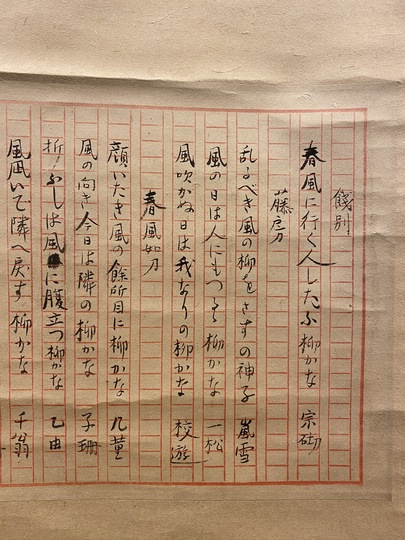 餞別
春風に行く人したふ柳かな 宗砌
藤房
乱るべき風の柳をさすの神子 嵐雪
風の日は人にもつるゝ柳かな 一松
風吹かぬ日は我なりの柳かな 校遊
春風如刀
顔いたき風の餘所目に柳かな 几董
風の向き今日は隣の柳かな 子珊
折ふしは風に腹立つ柳かな 乙由
風凪いで隣へ戻す柳かな 千翁